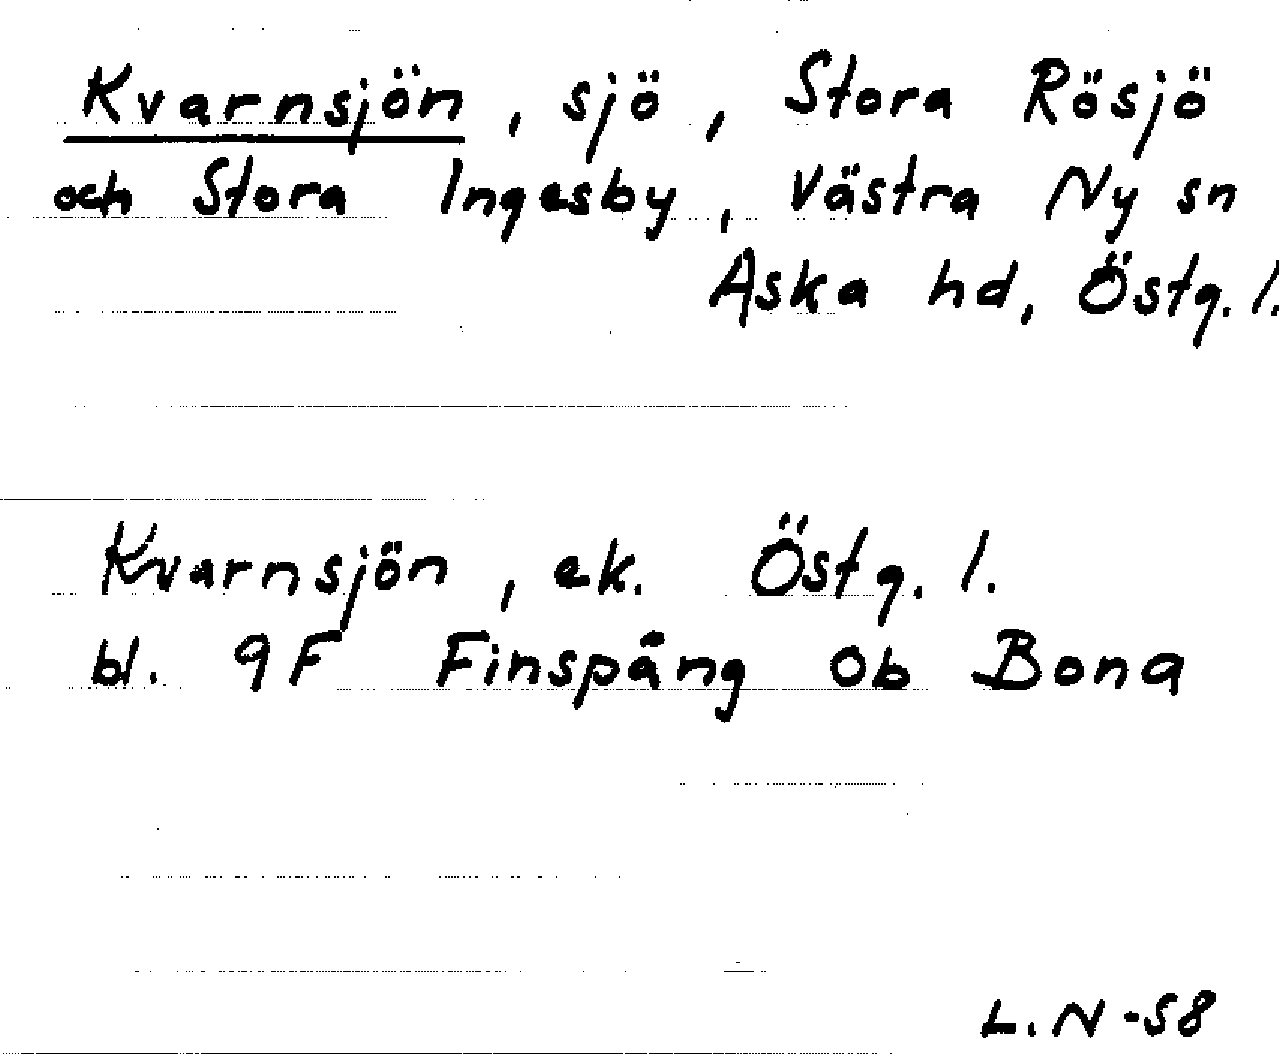 Kvarnsjön, sjö, Stora Rösjö
och Stora Ingesby, Västra Ny sn
Aska hd, Östg. l.
Kvarnsjön, ek. Östg. l.
bl. 9F Finspång 0b Bona
L.N -58